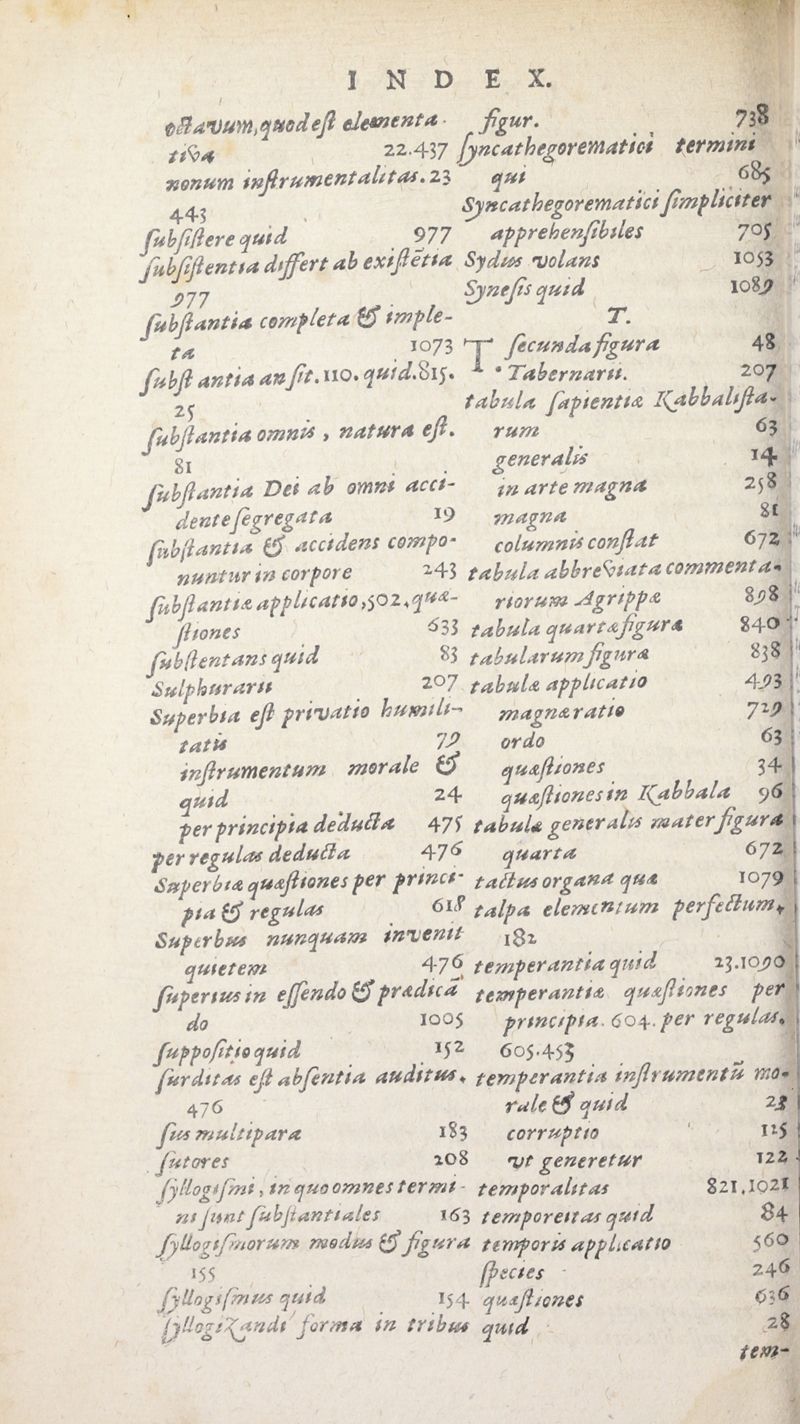 INDEX.
octavum, quod est elementa-
tiva 22.437
nonum instrumentalitas. 23
443
subsistere quid 977
subsistentia differt ab existẽtia
977
substantia completa & imple-
ta 1073
subst antia an sit. 110. quid. 815.
25
substantia omnis, natura est.
81
substantia Dei ab omni acci-
dente segregata 19
substantia & accidens compo-
nuntur in corpore 243
substantiæ applicatio, 502, quæ-
stiones 633
substentans quid 83
Sulphurarii 207
Superbia est privatio humili-
tatis 79
instrumentum morale &
quid 24
per principia deducta 475
per regulas deducta 476
Superbiæ quæstiones per princi-
pia & regulas 618
Superbus nunquam invenit
quietem 476
superius in essendo & prædicã
do 1005
suppositio quid 152
surditas est absentia auditus.
476
sus multipara 183
sutores 208
syllogismi, in quo omnes termi-
ni sunt substantiales 163
syllogismorum modus & figura
155
syllogismus quid 154
syllogizandi forma in tribus
figur. 738
syncathegorematici termini
qui 685
Syncathegorematici simpliciter
apprehensibiles 705
Sydus volans 1053
Synesis quid 1089
T.
T secunda figura 48
Tabernarii. 207
tabula sapientiæ Kabbalista-
rum 63
generalis 14
in arte magna 258
magna 81
columnis constat 672
tabula abbreviata commenta-
riorum Agrippæ 898
tabula quartæ figuræ 840
tabularum figura 838
tabulæ applicatio 493
magnæ ratio 729
ordo 63
quæstiones 34
quæstiones in Kabbala 96
tabulæ generalis mater figura
quarta 672
tactus organa quæ 1079
talpa elementum perfectum,
182
temperantia quid 23.1090
temperantiæ quæstiones per
principia. 604. per regulas.
605.453
temperantia instrumentũ mo-
rale & quid 23
corruptio 125
vt generetur 122
temporalitas 821.1021
temporeitas quid 84
temporis applicatio 560
species 246
quæstiones 636
quid 28
tem-